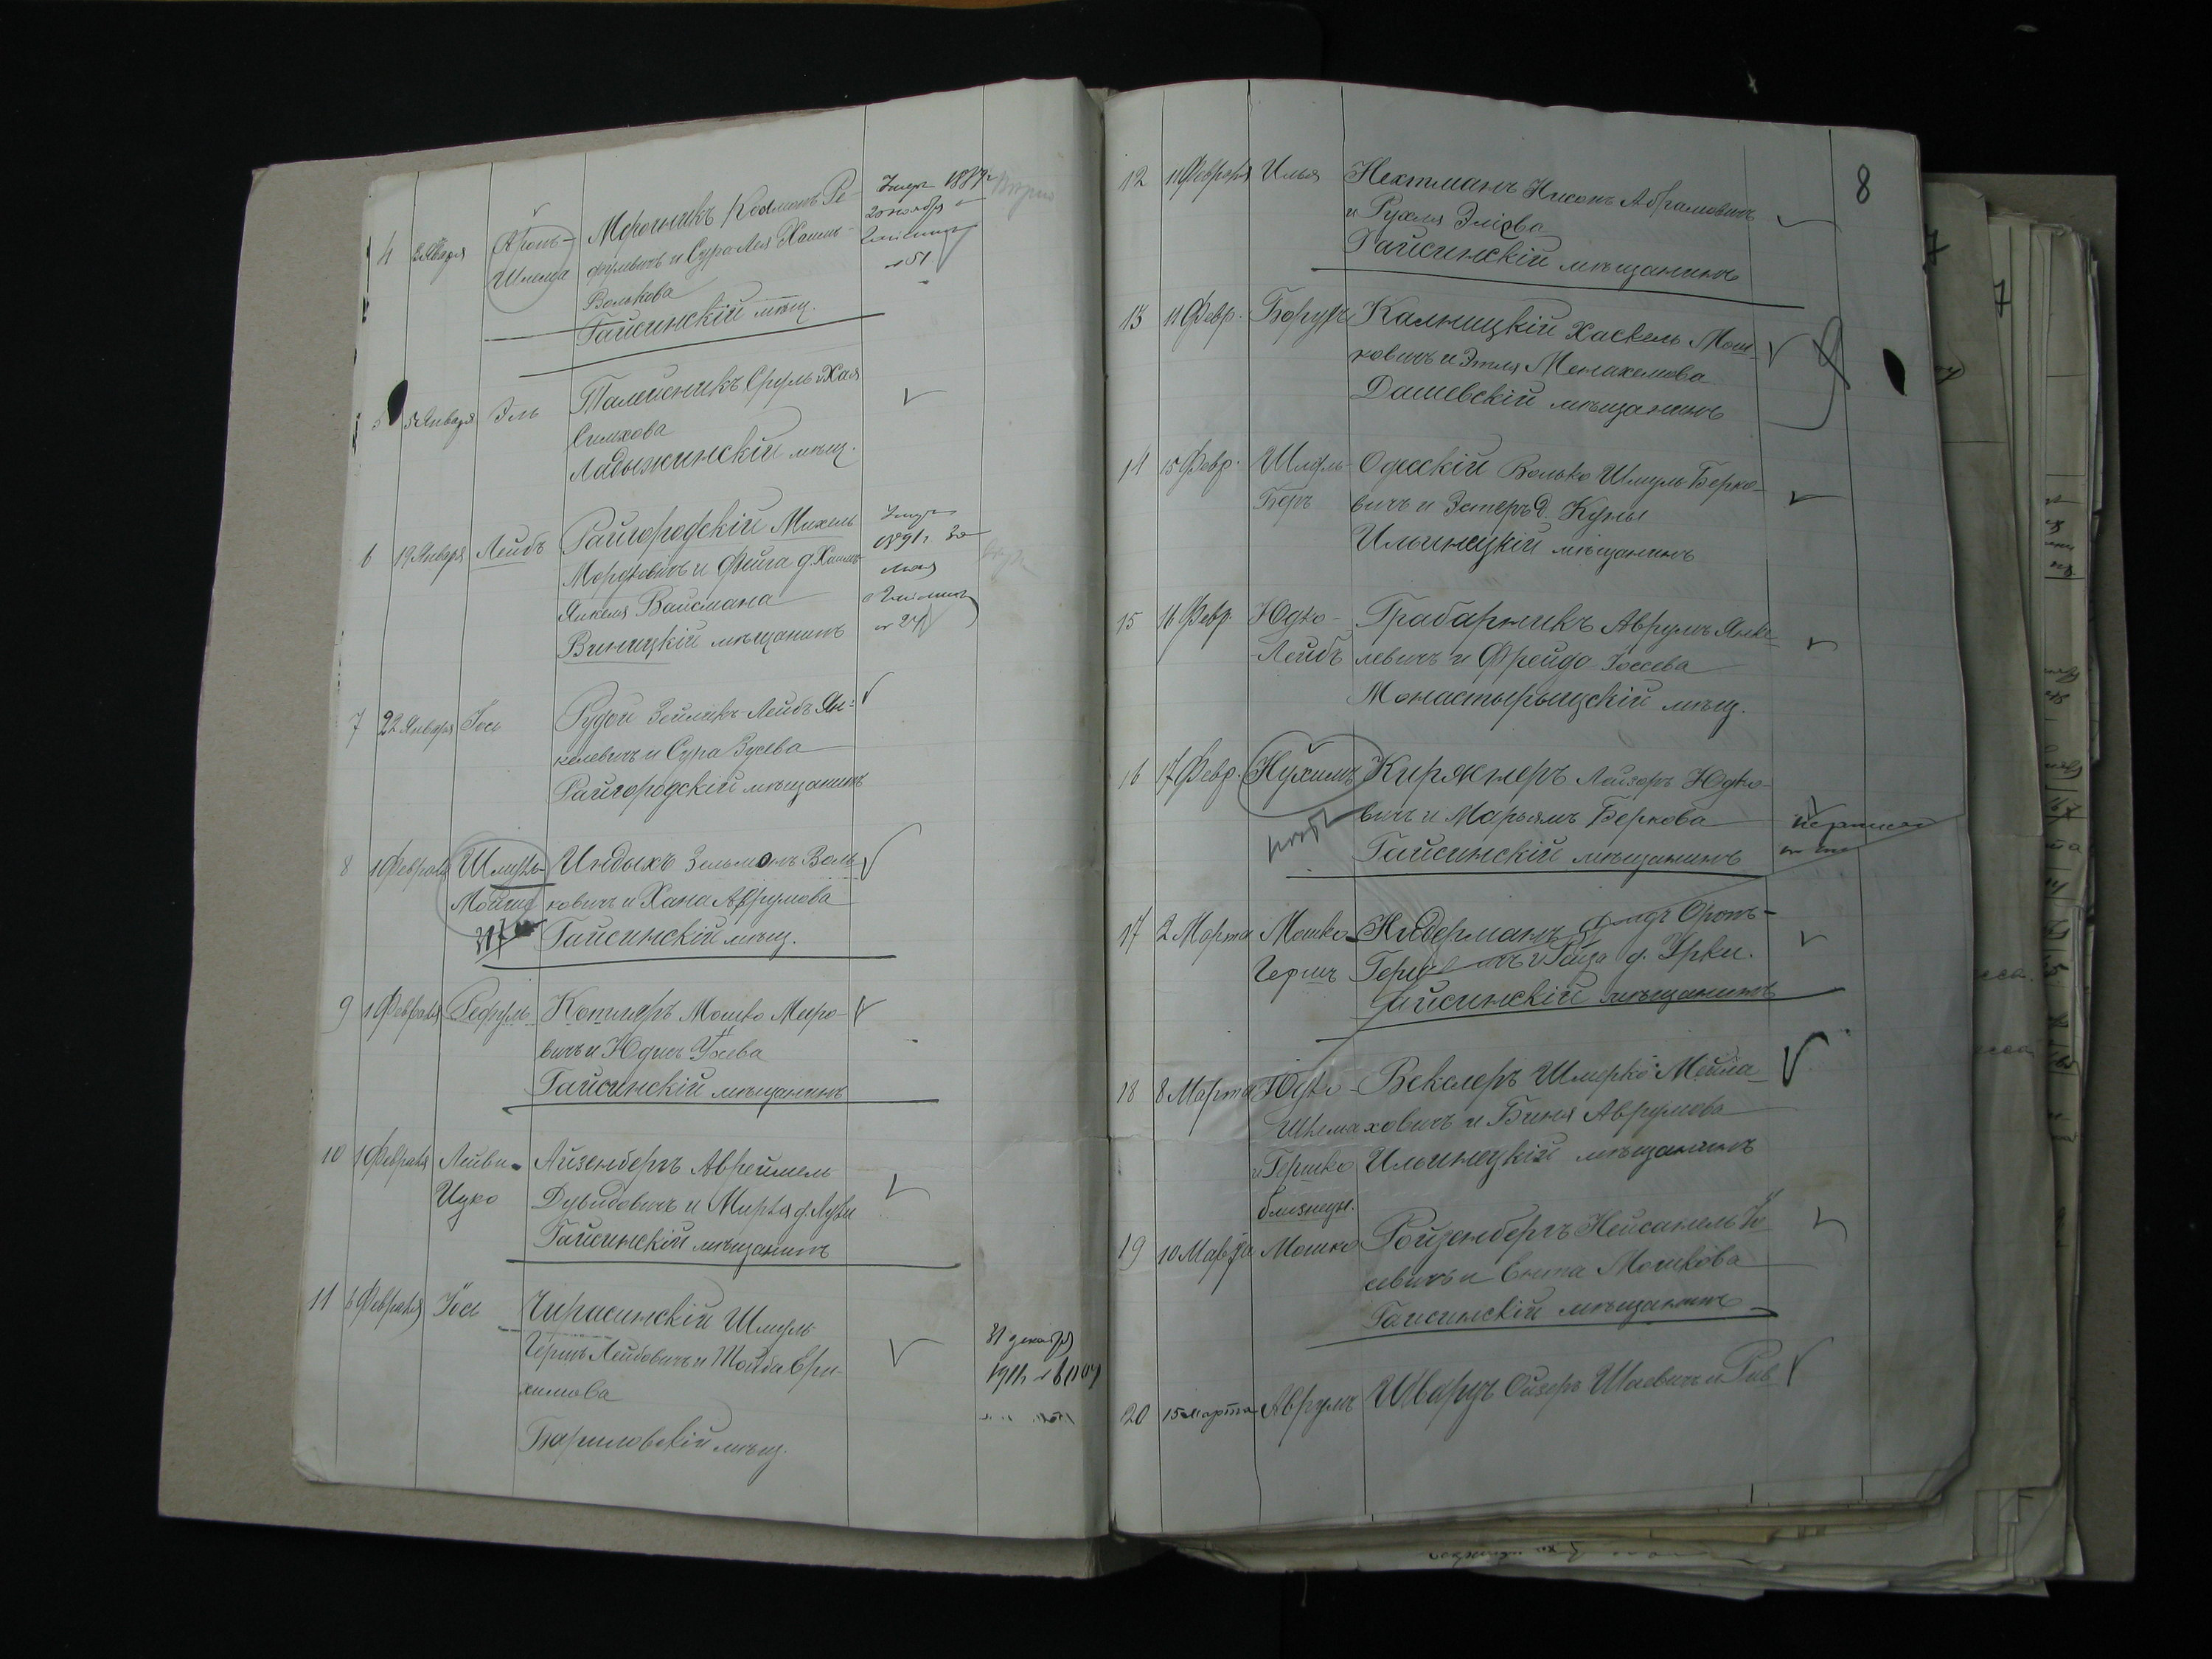 4 2 Января Аронъ- Мерочникъ Калманъ Ре-
Шлема фулевичъ и Сура Лея Хаимъ-
Волькова
Гайсинскій мѣщ.
Умеръ 1889 г.
20 ноября в
Гайсинѣ
№ 51
5 5 Января Эль Талейсникъ Сруль и Хая
Симхова
Ладыжинскій мѣщ.
6 19 Января Лейбъ Райгородскій Михель
Мордковичъ и Фейга д. Хаимъ
Янкеля Вайсмана
Виницкій мѣщанинъ
Умеръ
1891 г. 30
мая
в Гайсинѣ
№ 24
7 22 Января Іось Рудой Зейликъ-Лейбъ Ян-
келевичъ и Сура Зусева
Райгородскій мѣщанинъ
8 1 Февраля Шмуль- Индыкъ Зельманъ Воль-
Мойше ковичъ и Хана Аврумова
Гайсинскій мѣщ.
9 1 Февраля Рефулъ Копляръ Мошко Меро-
вичъ и Юдисъ Іосева
Гайсинскій мѣщанинъ
10 1 Февраля Лейви- Айзенбергъ Авреймель
Ицко Дувидовичъ и Мирля д. Лузи
Гайсинскій мѣщанинъ
11 6 Февраля Іось Чирасинскій Шмуль
Герцъ Лейбовичъ и Тойба Фри-
химова
Бариловскій мѣщ.
31 декабря
1911 г. №
8
12 11 Февраля Илья Нехтманъ Нисонъ Абрамовичъ
и Рухля Эліова
Гайсинскій мѣщанинъ
13 11 Февр. Борухъ Калницкій Хаскель Мош-
ковичъ и Этля Менахемова
Дашевскій мѣщанинъ
14 15 Февр. Шмуль- Одесскій Волько Шмуль Берко-
Беръ вичъ и Эстеръ д. Куны
Ильинецкій мѣщанинъ
15 16 Февр. Юдко- Грабарникъ Аврумъ Янке-
Лейбъ левичъ и Фрейда Іосева
Монастырыщскій мѣщ.
16 17 Февр. Нухимъ Киржнеръ Лайзоръ Юдко-
вичъ и Марьямъ Беркова
Гайсинскій мѣщанинъ
17 2 Марта Мошко- Нидерманъ Аронъ-
Гершъ и Рейза д. Урки.
Гайсинскій мѣщанинъ
18 8 Марта Юдко- Векслеръ Шмерко Мейла-
Шлема ховичъ и Биня Аврумова
и Гершко Ильинецкій мѣщанинъ
близнецы.
19 10 Марта Мошко Ройзенбергъ Нейсанель Іо-
севичъ и Ента Мошкова
Гайсинскій мѣщанинъ
20 15 Марта Аврумъ Шварцъ Ойзеръ Шаевичъ и Рив